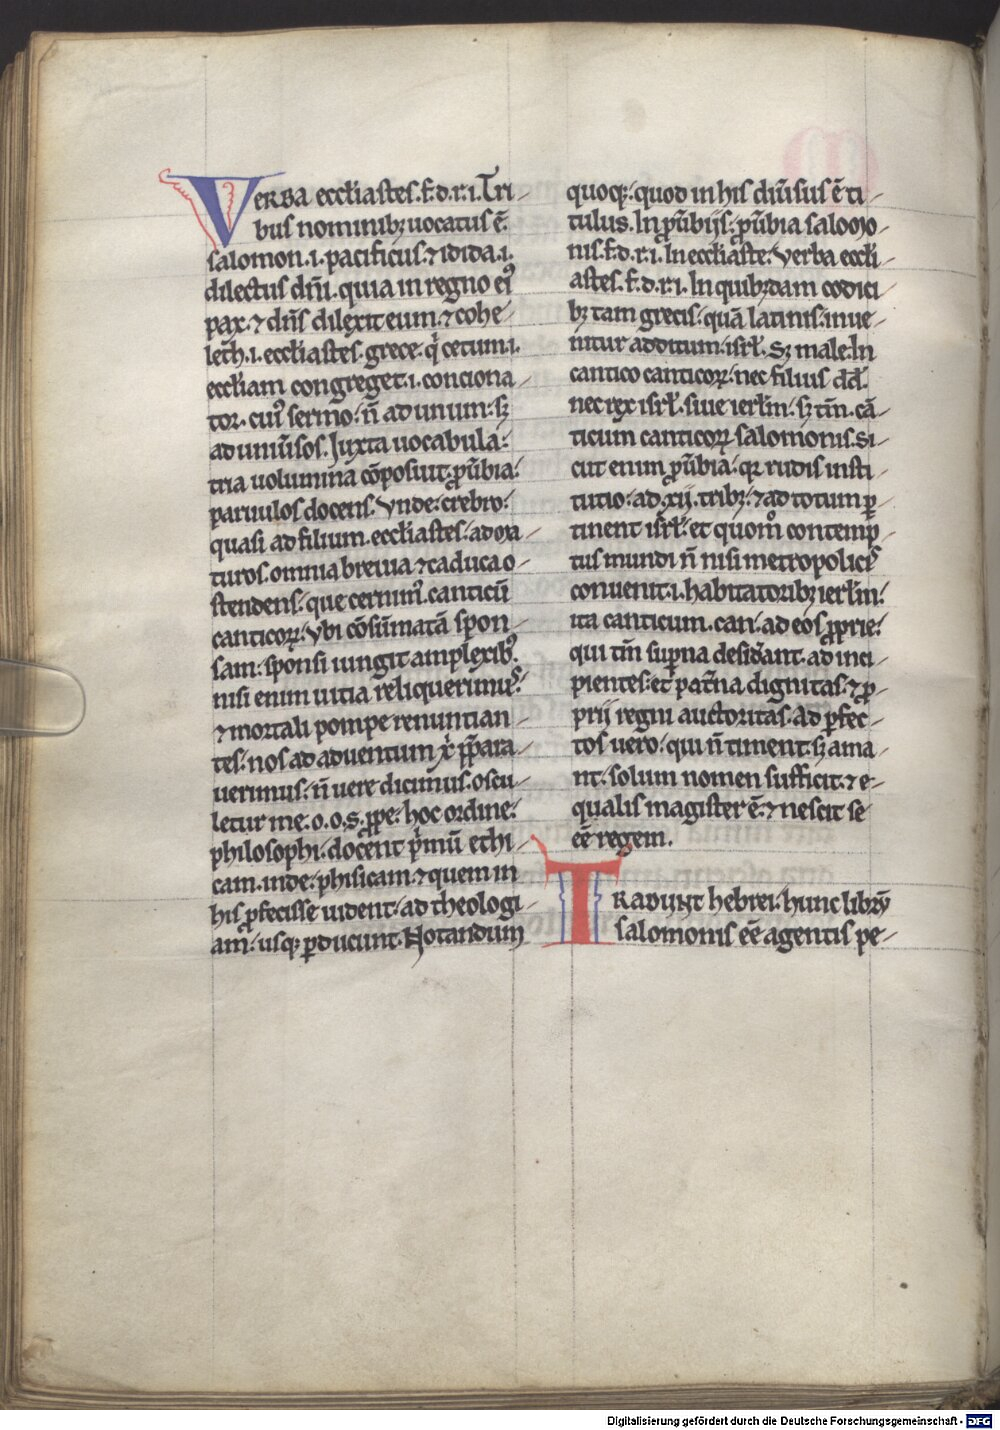 VERBA eccl̄iastes. f. d. r. i. Tri-
bus nominibꝫ uocatus ē.
salomon .i. pacificus. ⁊ idida .i.
dilectus dn̄i. quia in regno eiꝰ
pax. ⁊ dn̄s dilexit eum. ⁊ cohe-
leth .i. eccl̄iastes. grece. q̇ cetum .i.
eccl̄iam congreget .i. conciona-
tor. cuiꝰ sermo. n̄ ad unum. sꝫ
ad uniūsos. Juxta uocabula.
tria uolumina cōposuit. ꝓūbia.
paruulos docens. Vnde. crebro.
quasi ad filium. eccl̄iastes. ad ma-
turos. omnia breuia ⁊ caduca o-
stendens. que cernimꝰ. canticū
canticoꝝ. Vbi cōsūmatā spon-
sam. sponsi iungit amplexibꝰ.
nisi enim uitia reliquerimus.
⁊ mortali pompe renuntian-
tes. nos ad aduentum xp̄i p̄para-
uerimus. n̄ uere dicim̄us. oscu-
letur me. o. o. s. ꝓpe. hoc ordine.
philosophi. docent ṗmū ethi-
cam. inde. phisicam. ⁊ quem in
his ꝓfecisse uident. ad theologi-
am. usqꝫ ꝑducunt. Notandum
quoqꝫ. quod in his diūsus ē ti-
tulus. In ꝓūbijs. ꝓūbia salomo-
nis. f. d. r. i. In eccl̄iaste. Verba eccl̄i-
astes. f. d. r. i. In quibꝫdam codici-
bꝫ tam grecis. quā latinis. inue-
nitur additum. isrl̄. Sꝫ male. In
cantico canticoꝝ. nec filius dd̄.
nec rex isrl̄. siue ierl̄m. sꝫ tm̄. cā-
ticum canticoꝝ salomonis. Si-
cut enim ꝓūbia. qꝛ rudis insti-
tutio. ad .xij. tribꝫ. ⁊ ad totum ꝑ-
tinent isrl̄. et quom̊ contemp-
tus mundi n̄ nisi metropolicis
conuenit .i. habitatoribꝫ ierl̄m.
ita canticum. can. ad eos ꝓprie.
qui tm̄ sup̄na desid̄ant. ad inci-
pientes. et pat̄na dignitas. ⁊ ꝓ-
prij regni auctoritas. Ad ꝑfec-
tos uero. qui n̄ timent. sꝫ ama-
nt. solum nomen sufficit. ⁊ e-
qualis magister ē. ⁊ nescit se
eē regem.
TRADUNT hebrei. hunc librū
salomonis eē agentis pe-
Digitalisierung gefördert durch die Deutsche Forschungsgemeinschaft - DFG